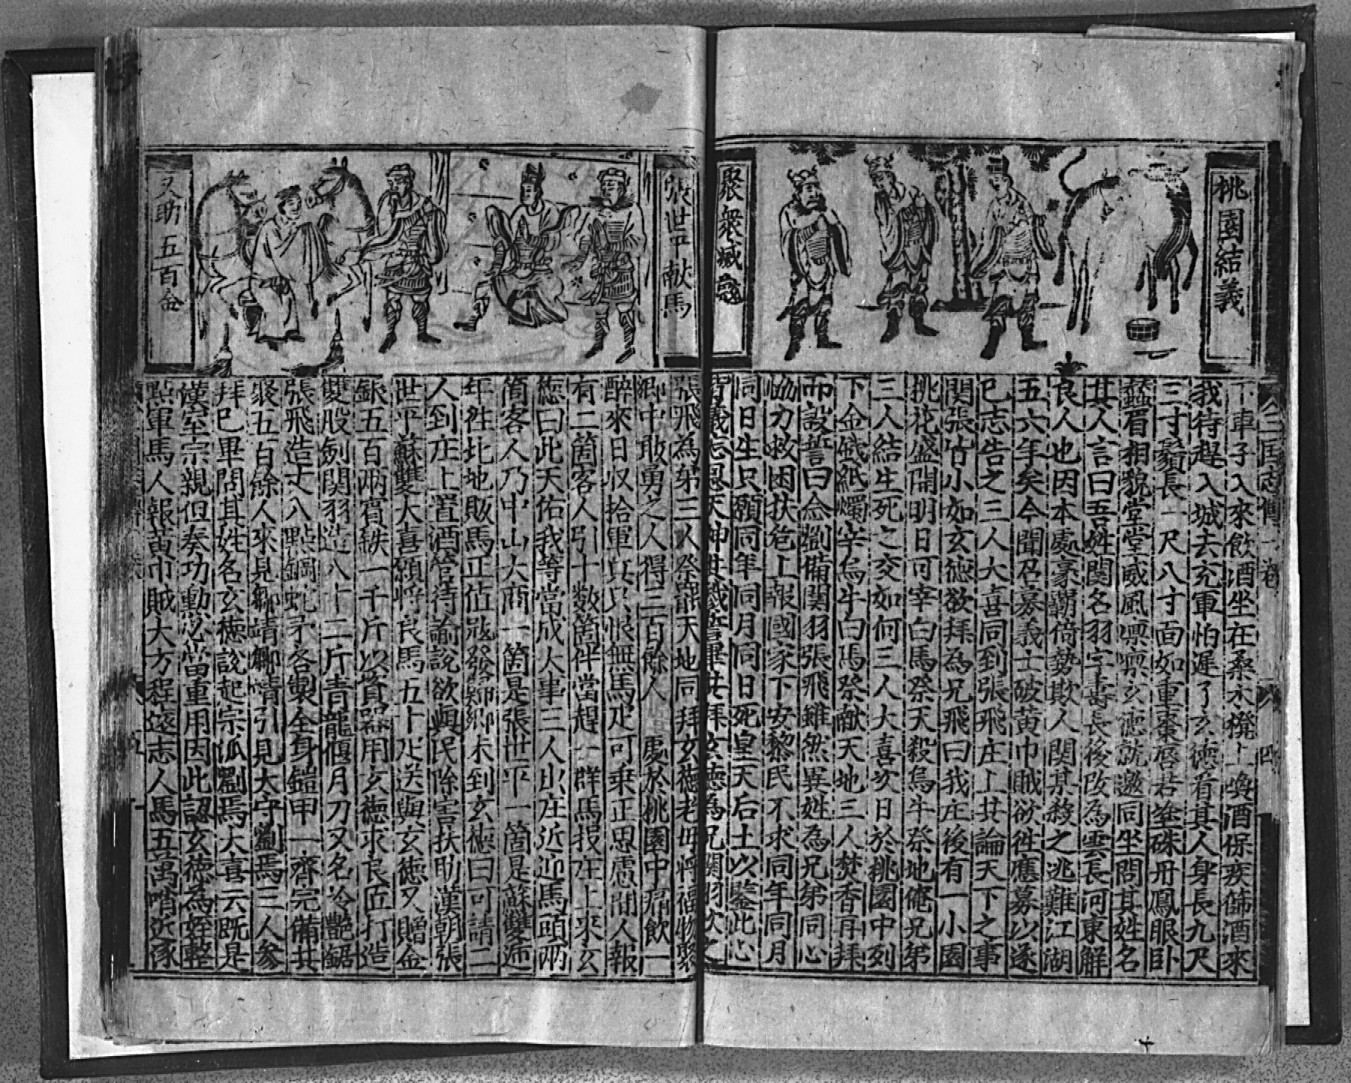 桃園結義
聚眾滅寇
下車子入來飲酒坐在桑木櫈上喚酒保疾篩酒來
我待趕入城去充軍怕遲了玄德看其人身長九尺
三寸鬚長一尺八寸面如重棗唇若塗硃丹鳳眼卧
蠶眉相貌堂堂威風凜凜玄德就邀同坐問其姓名
其人言曰吾姓関名羽字壽長後改為雲長河東解
良人也因本處豪霸倚勢欺人関某殺之逃難江湖
五六年矣今聞召募義士破黃巾賊欲徃應募以遂
已志告之三人大喜同到張飛庄上共論天下之事
関張皆小如玄德欲拜為兄飛曰我庄後有一小園
桃花盛開明日可宰白馬祭天殺烏牛祭地俺兄弟
三人結生死之交如何三人大喜次日於桃園中列
下金錢紙燭宰烏牛白馬祭献天地三人焚香再拜
而設誓曰念劉備関羽張飛雖然異姓為兄弟同心
恊力救困扶危上報國家下安黎民不求同年同月
同日生只願同年同月同日死皇天后土以鑒此心
背義忘恩天神共戮誓畢共拜玄德為兄関羽次之
張世平献馬
又助五百金
張飛為弟三人祭罷天地同拜玄德老母將福物聚
鄉中敢勇之人得三百餘人 處於桃園中痛飲一
醉來日収拾軍器只恨無馬疋可乗正思慮間人報
有二箇客人引十數箇伴當趕一群馬投庄上來玄
德曰此天佑我等當成大事三人出庄近迎馬頭兩
箇客人乃中山大商一箇是張世平一箇是蘇雙
年徃北地販馬正值寇發 鄉未到玄德曰可請二
人到庄上置酒管待諭說欲與民除害扶助漢朝張
世平蘇雙大喜願將良馬五十疋送與玄德又贈金
銀五百兩賓鉄一千斤以資器用玄德求良匠打造
雙股劍関羽造八十二斤青龍偃月刀又名冷艷鋸
張飛造丈八點鋼蛇矛各製全身鎧甲一齊完備共
聚五百餘人來見鄒靖鄒靖引見太守劉焉三人參
拜已畢問其姓名玄德說起宗派劉焉大喜云既是
漢室宗親但奏功勳必當重用因此認玄德為姪整
點軍馬人報黃巾賊大方程遠志人馬五萬哨近涿